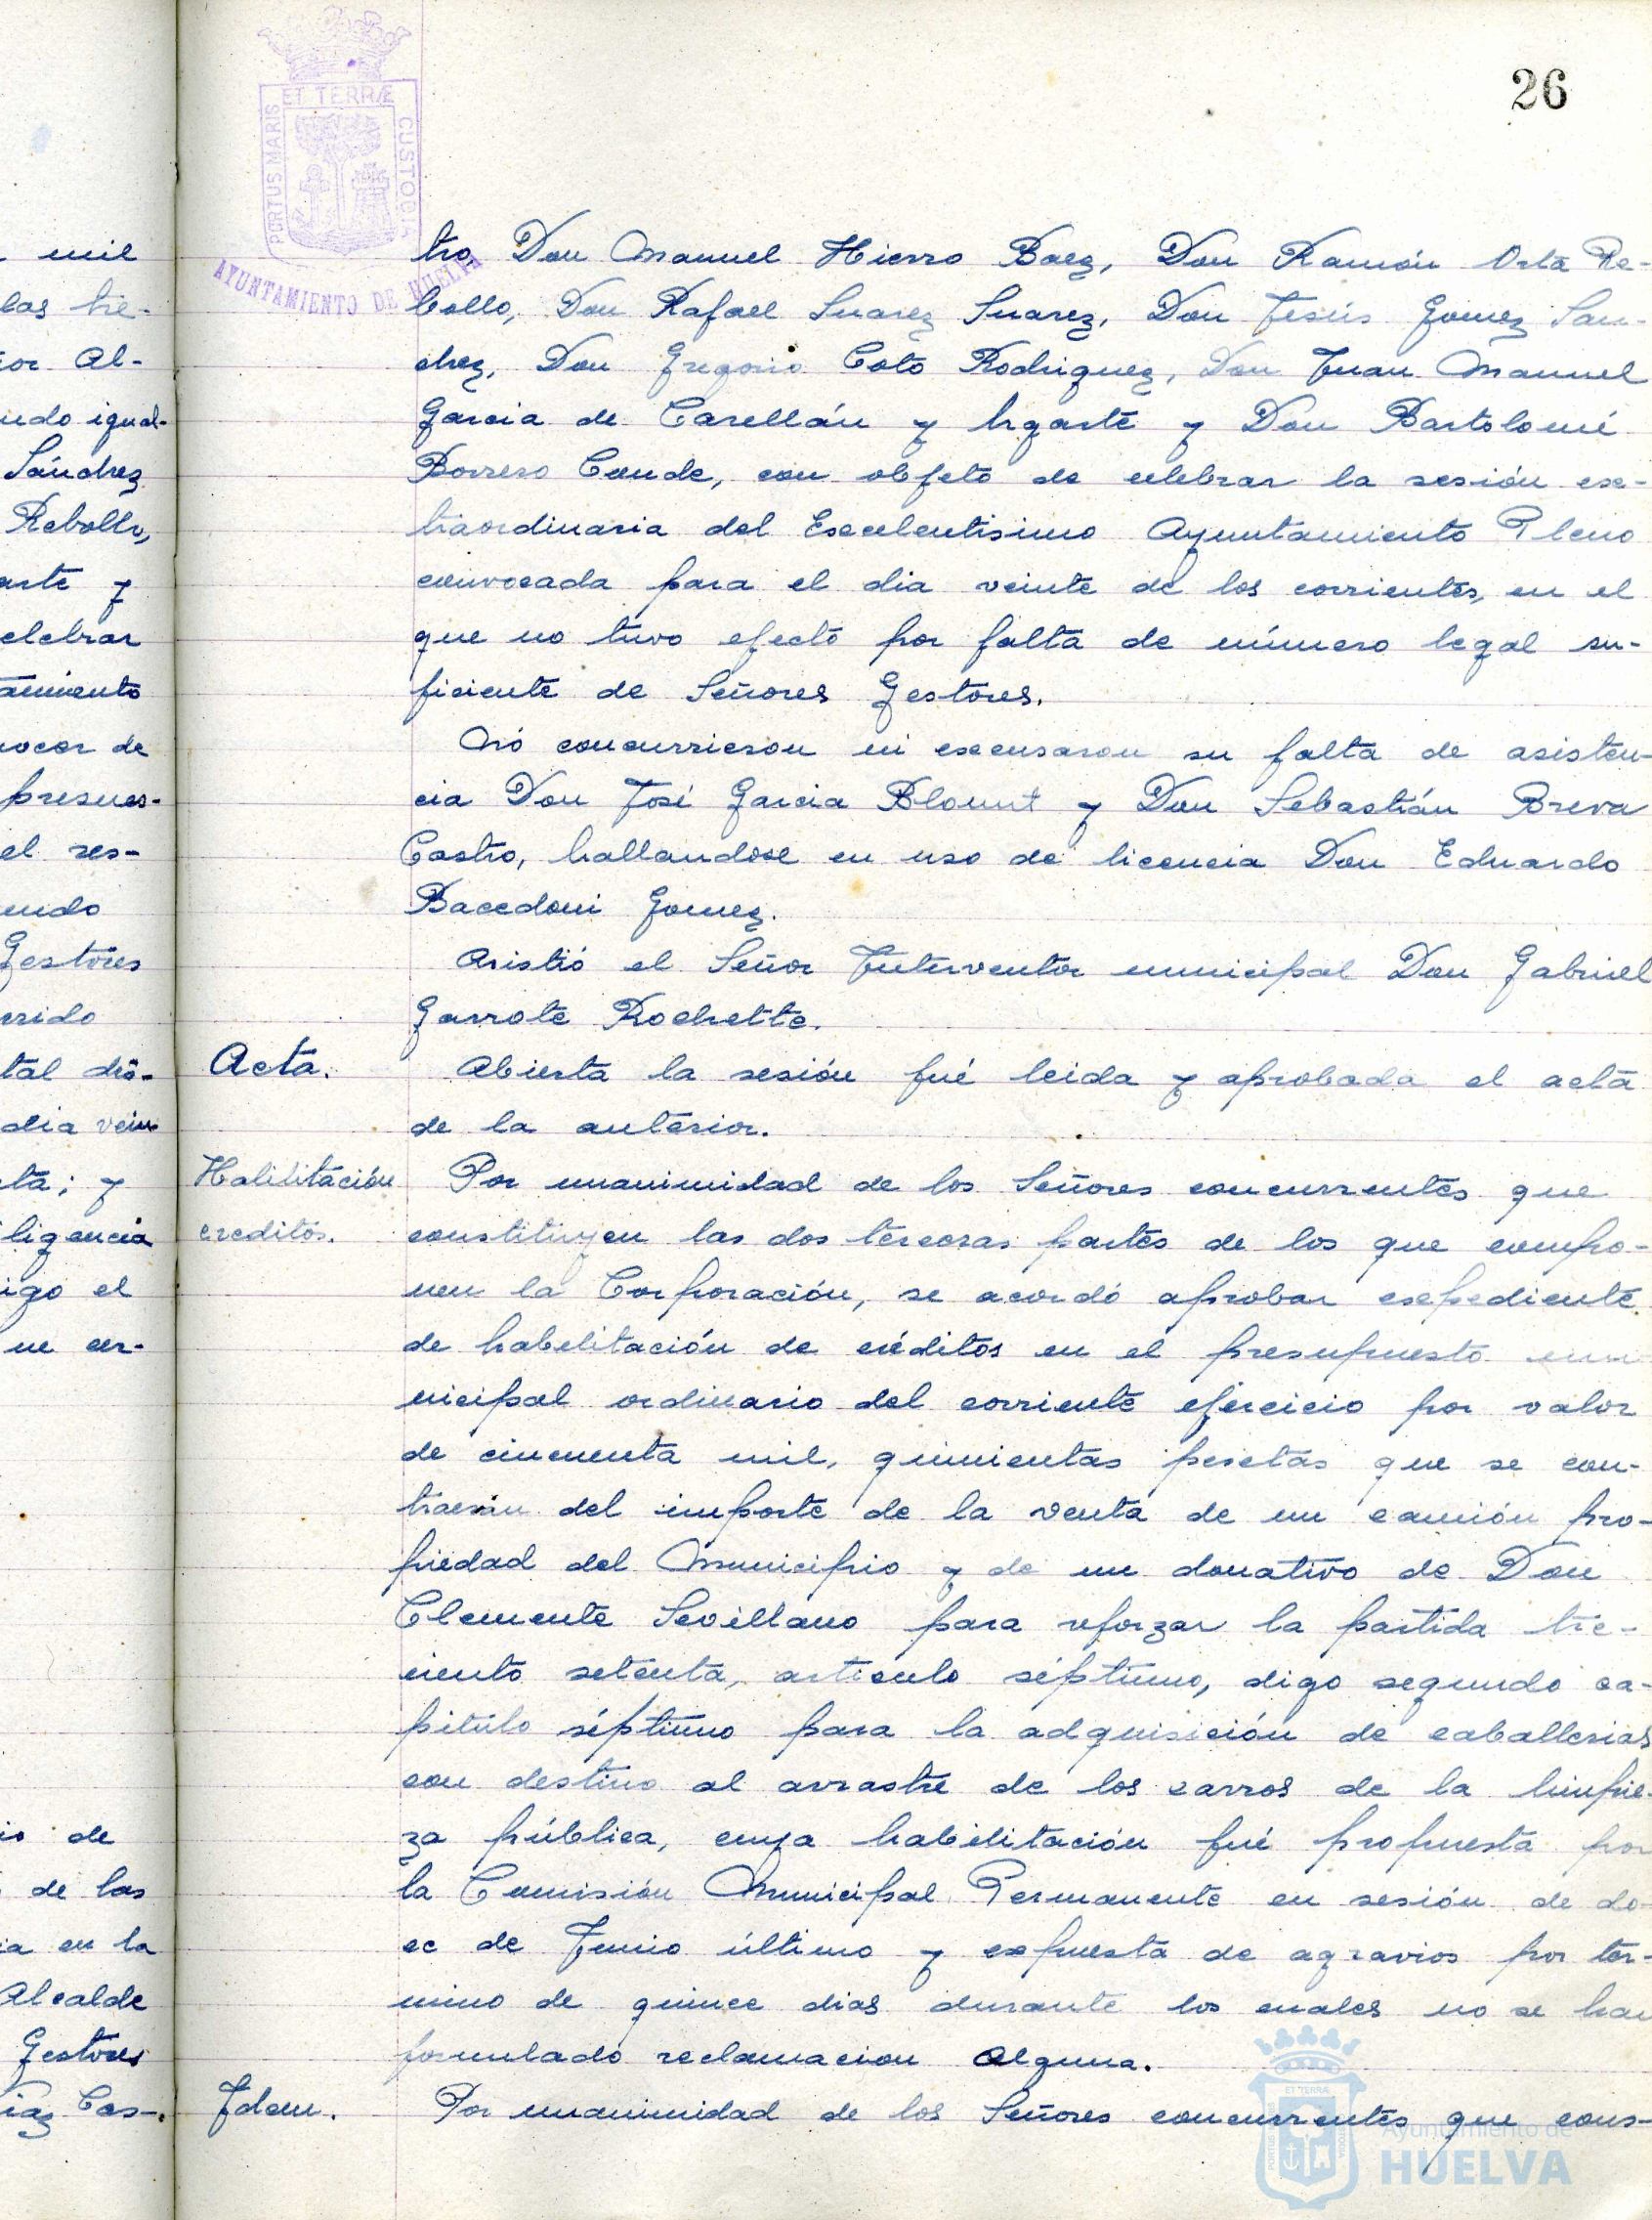 26
ET TERRÆ
PORTUS MARIS
CUSTODIA
AYUNTAMIENTO DE HUELVA
mil
las tie-
or Al-
ndo igual-
Sánchez
Rebollo,
arte y
elebrar
tamiento
nocer de
presues-
el res-
endo
Gestores
erido
tal dió-
dia vein
ta; y
ligencia
igo el
ue cer-
io de
de las
ia en la
Alcalde
Gestores
iaz Cas-
tro, Don Manuel Hierro Baez, Don Ramón Orta Re-
bollo, Don Rafael Suarez Suarez, Don Jesús Gomez San-
chez, Don Gregorio Coto Rodriguez, Don Juan Manuel
Garcia de Carellán y Ugarte y Don Bartolomé
Borrero Conde, con objeto de celebrar la sesión ex-
traordinaria del Excelentisimo Ayuntamiento Pleno
convocada para el dia veinte de los corrientes, en el
que no tuvo efecto por falta de número legal su-
ficiente de Señores Gestores.
No concurrieron ni excusaron su falta de asisten-
cia Don José Garcia Blount y Don Sebastián Breva
Castro, hallandose en uso de licencia Don Eduardo
Bacedoni Gomez.
Asistió el Señor Interventor municipal Don Gabriel
Garrote Rochette.
Acta.
Abierta la sesión fué leida y aprobada el acta
de la anterior.
Habilitación
creditos.
Por unanimidad de los Señores concurrentes que
constituyen las dos terceras partes de los que compo-
nen la Corporación, se acordó aprobar expediente
de habilitación de créditos en el presupuesto mu-
nicipal ordinario del corriente ejercicio por valor
de cincuenta mil, quinientas pesetas que se con-
traerán del importe de la venta de un camión pro-
piedad del Municipio y de un donativo de Don
Clemente Sevillano para reforzar la partida tre-
ciento setenta, articulo séptimo, digo segundo ca-
pitulo séptimo para la adquisición de caballerias
con destino al arrastre de los carros de la limpie-
za pública, cuya habilitación fué propuesta por
la Comisión Municipal Permanente en sesión de do-
ce de Junio último y expuesta de agravios por tér-
mino de quince dias durante los cuales no se han
formulado reclamacion alguna.
Idem.
Por unanimidad de los Señores concurrentes que cons-
Ayuntamiento de
HUELVA